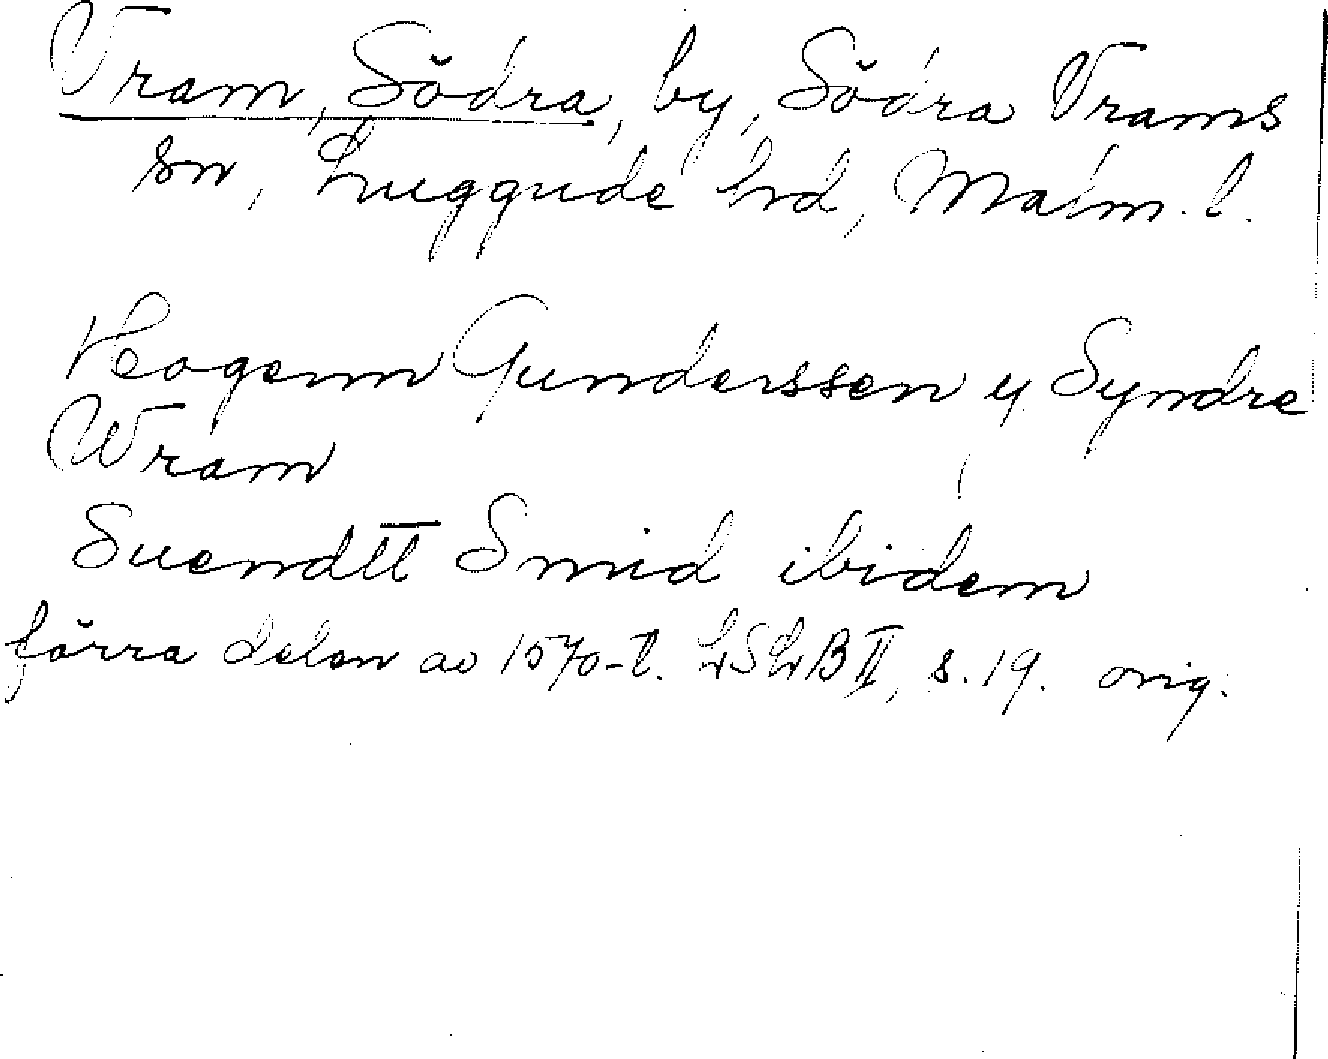 Vram, Södra, by, Södra Vrams
sn, Luggude hd, Malm. l.
Hogenn Gunderssen y Syndre
Wram
Suendtt Smid ibidem
förra delen av 1570-t. LSLB II, s. 19. orig.